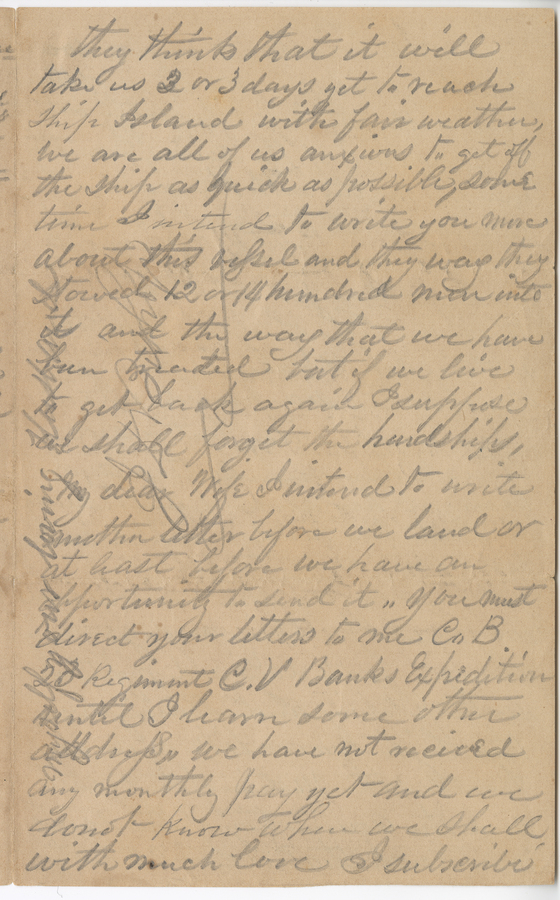 they think that it will
take us 2 or 3 days yet to reach
Ship Island with fair weather,
we are all of us anxious to get off
the ship as quick as possible, some
time I intend to write you more
about this vessel and they way they
stowed 12 or 14 hundred men into
it and the way that we have
ben treated but if we live
to get back again I suppose
we shall forget the hardships,
My dear Wife I intend to write
another letter before we land or
at least before we have an
opportunity to send it,, You must
direct your letters to me Co B.
Regiment C.V Banks Expedition
until I learn some other
address,, we have not recieved
any monthly pay yet and we
do not know when we shall
with much love I subscribe